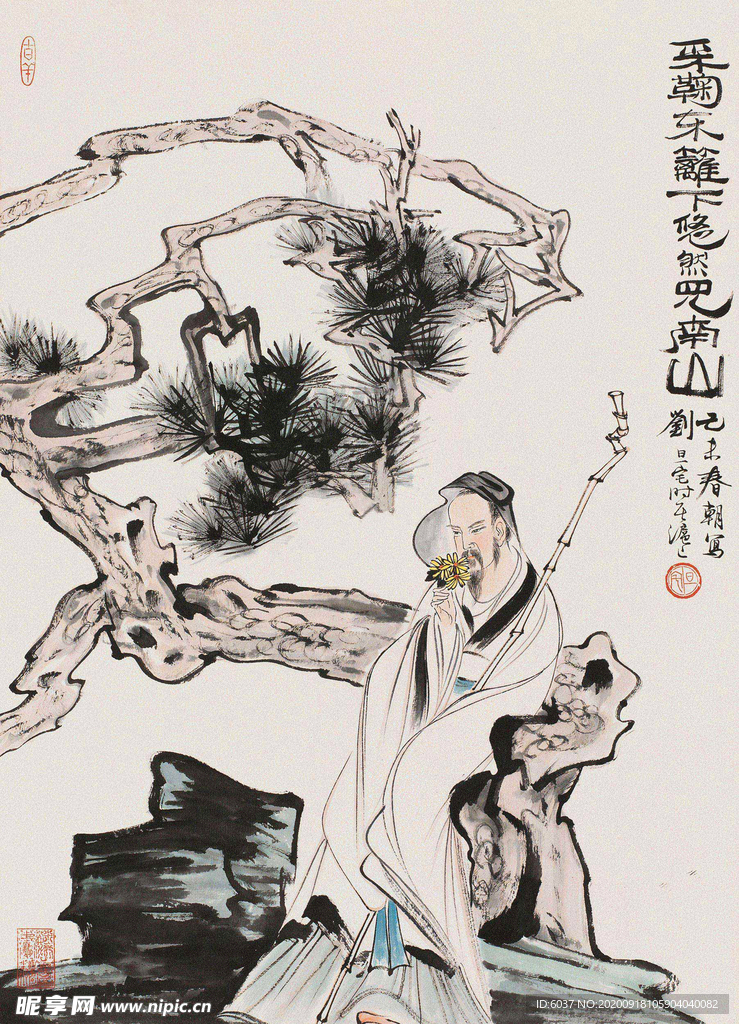 采鞠东籬下悠然见南山
乙未春朝写
劉旦宅时居滬上
旦宅
吉羊
昵享网 www.nipic.cn
ID:6037 NO:20200918105904040082